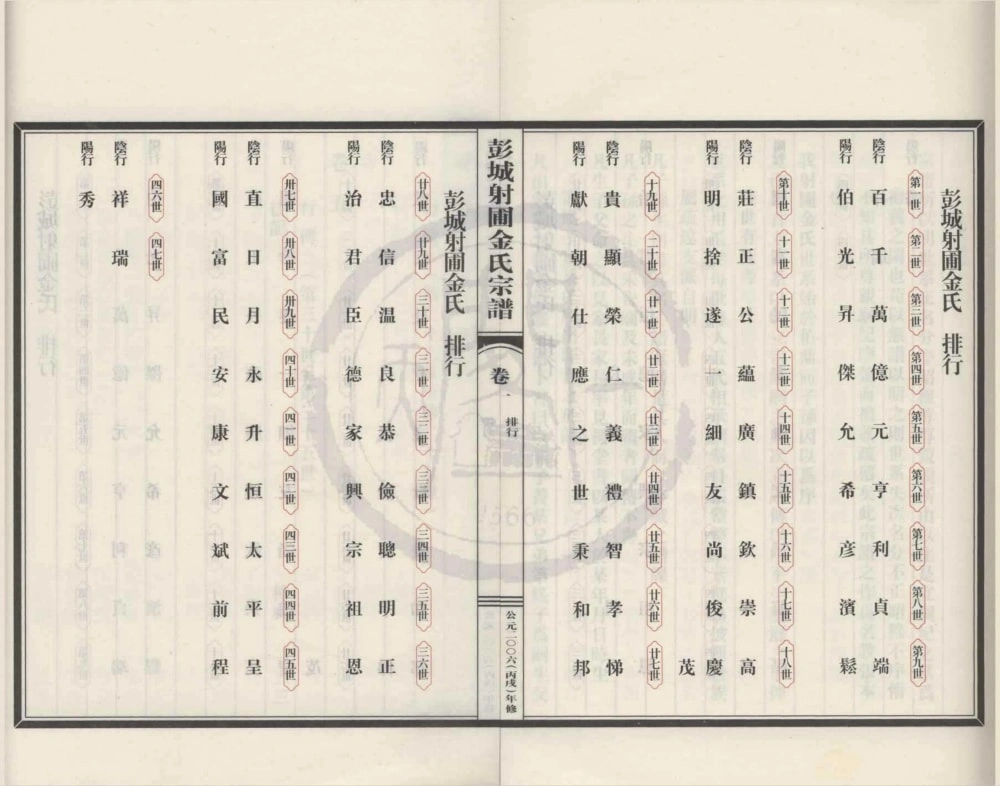 彭城射圃金氏 排行
第一世 第二世 第三世 第四世 第五世 第六世 第七世 第八世 第九世
陰行 百 千 萬 億 元 亨 利 貞 端
陽行 伯 光 昇 傑 允 希 彦 濱 鬆
第十世 十一世 十二世 十三世 十四世 十五世 十六世 十七世 十八世
陰行 莊 正 公 蘊 廣 鎮 欽 崇 高
陽行 明 捨 遂 一 細 友 尚 俊 慶
茂
十九世 二十世 廿一世 廿二世 廿三世 廿四世 廿五世 廿六世 廿七世
陰行 貴 顯 榮 仁 義 禮 智 孝 悌
陽行 獻 朝 仕 應 之 世 秉 和 邦
彭城射圃金氏宗譜
卷一 排行
公元二〇〇六(丙戌)年修
彭城射圃金氏 排行
廿八世 廿九世 三十世 三一世 三二世 三三世 三四世 三五世 三六世
陰行 忠 信 温 良 恭 儉 聰 明 正
陽行 治 君 臣 德 家 興 宗 祖 恩
卅七世 卅八世 卅九世 四十世 四一世 四二世 四三世 四四世 四五世
陰行 直 日 月 永 升 恒 太 平 呈
陽行 國 富 民 安 康 文 斌 前 程
四六世 四七世
陰行 祥 瑞
陽行 秀
1566